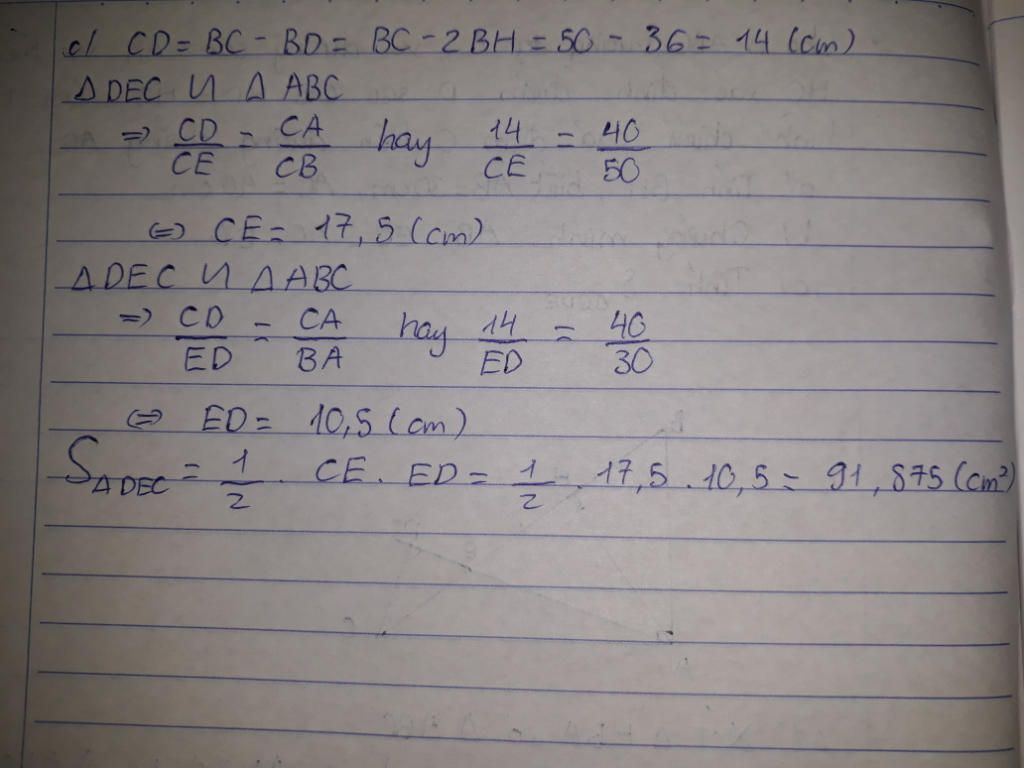 c/ CD = BC - BD = BC - 2BH = 50 - 36 = 14 (cm)
Δ DEC ∽ Δ ABC
=> CD/CE = CA/CB hay 14/CE = 40/50
<=> CE = 17,5 (cm)
Δ DEC ∽ Δ ABC
=> CD/ED = CA/BA hay 14/ED = 40/30
<=> ED = 10,5 (cm)
S ΔDEC = 1/2 . CE . ED = 1/2 . 17,5 . 10,5 = 91,875 (cm²)